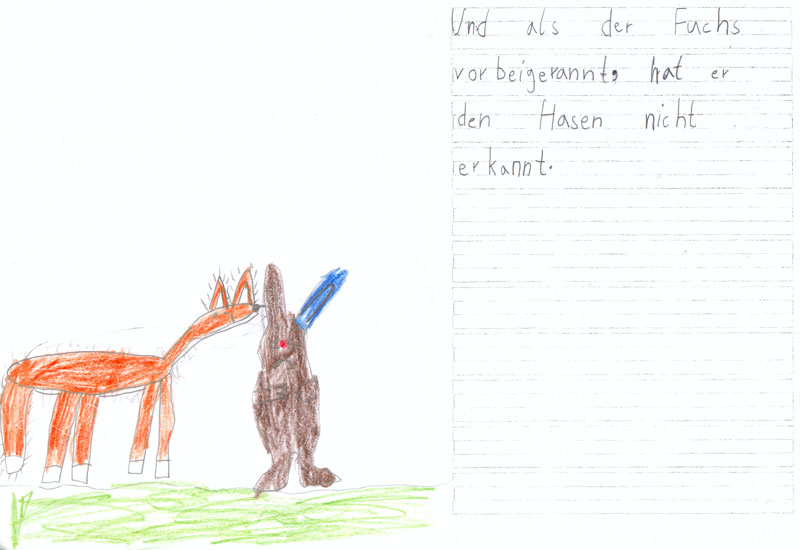 Und als der Fuchs
vorbeigerannt, hat er
den Hasen nicht
erkannt.